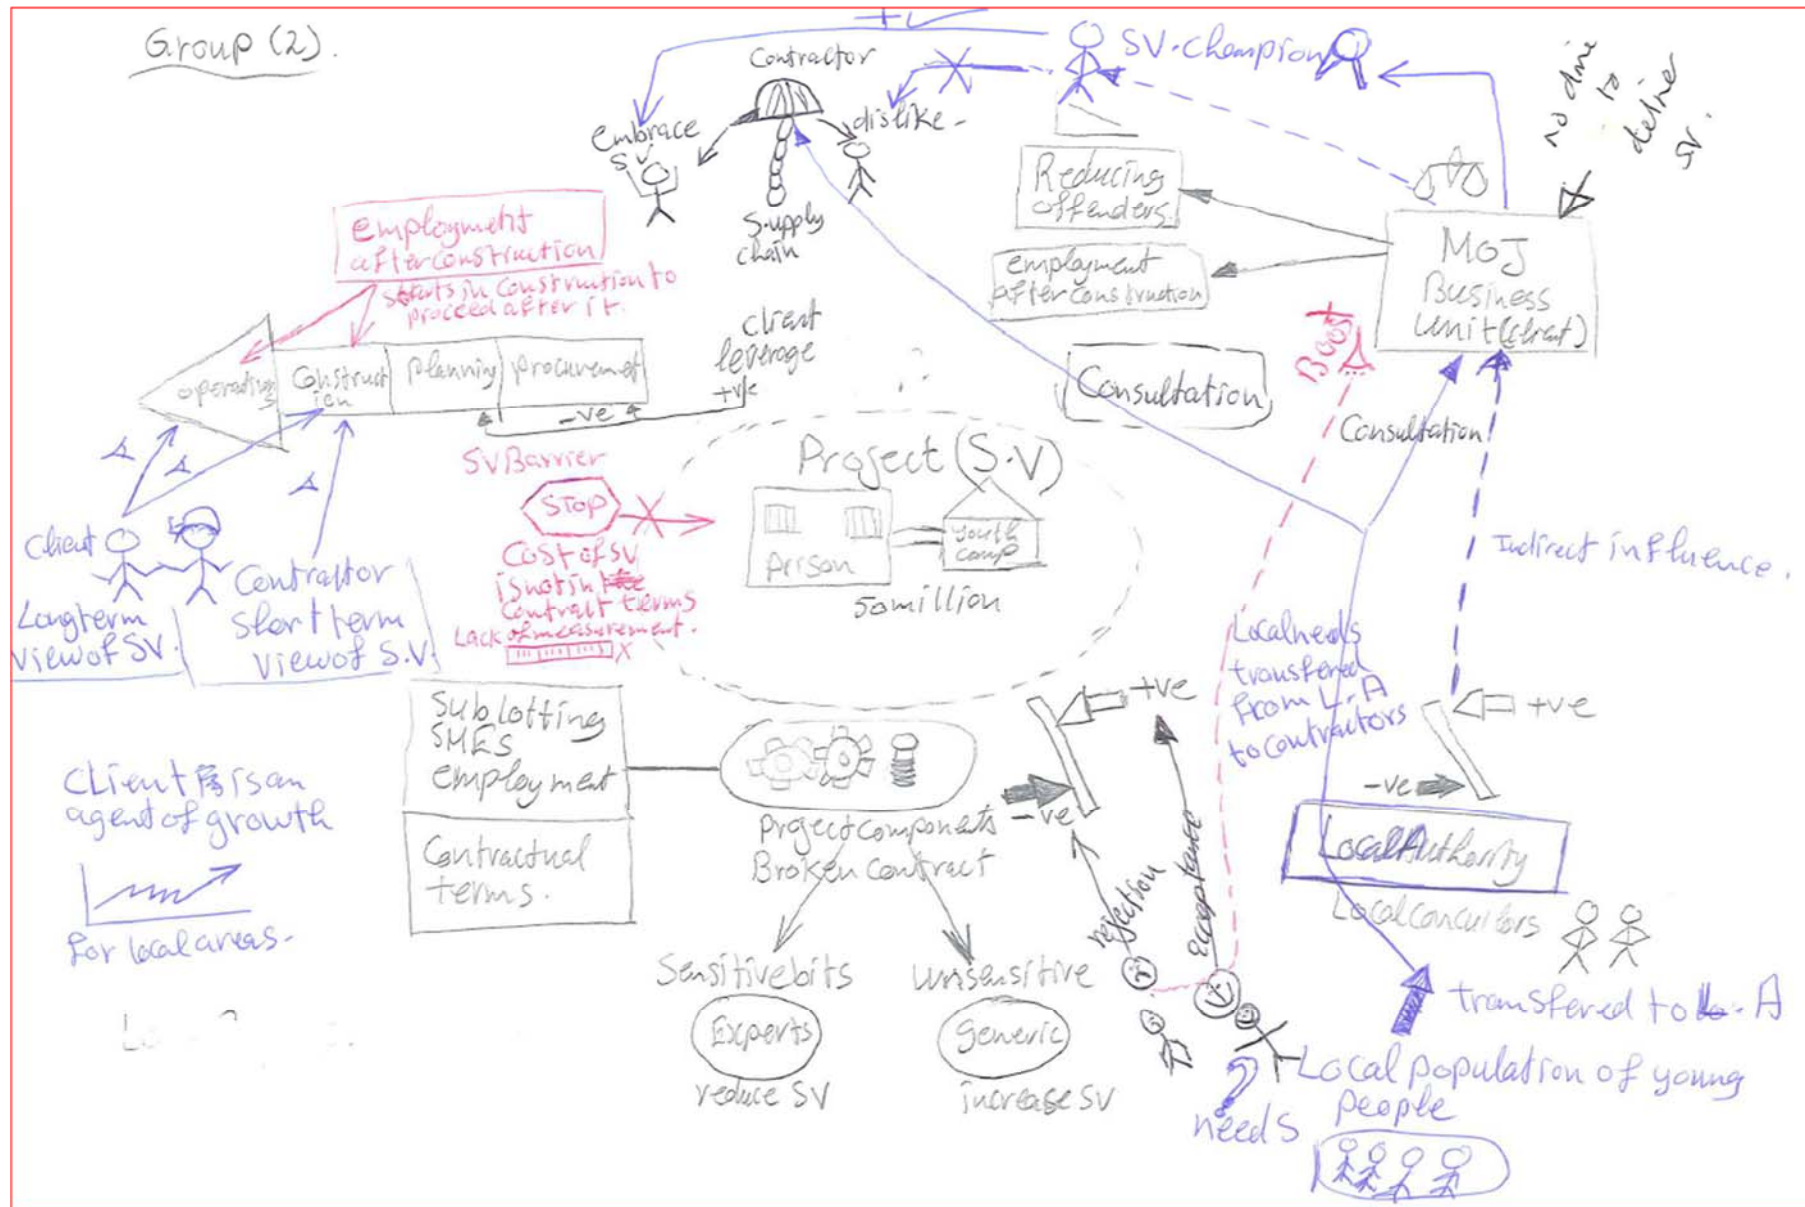 Group (2).
SV. champion
Contractor
embrace
SV.
dislike -
Supply
chain
no drive
to
deliver
SV.
Reducing
offenders.
employment
after construction
MOJ
Business
Unit (client)
employment
after construction
starts in construction to
proceed after it.
client
leverage
+ve
-ve
operations
Construct
ion
Planning
procurement
Consultation
Boost
Consultation
SV Barrier
STOP
Cost of SV
is not in the
Contract terms
Lack of measurement.
Project (S.V)
Prison
youth
camp
50 million
Client
Long term
view of SV.
Contractor
Short term
view of S.V.
Indirect influence.
Local needs
transfered
from L.A
to contractors
+ve
-ve
+ve
-ve
Sublotting
SMES
employment
Contractual
terms.
Project components
Broken contract
Client is an
agent of growth
for local areas-
rejection
Local Authority
Sensitive bits
Experts
reduce SV
Unsensitive
Generic
increase SV
transfered to L. A
Local population of young
people
needs